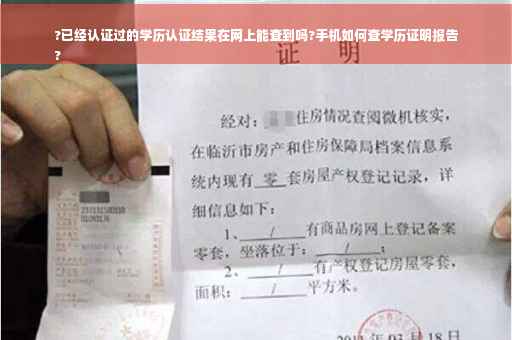 ?已经认证过的学历认证结果在网上能查到吗?手机如何查学历证明报告
?
证 明
经对: 住房情况查阅微机核实,
在临沂市房产和住房保障局档案信息系
统内现有 零 套房屋产权登记记录,详
细信息如下:
1、 / 有商品房网上登记备案
零套,坐落位于: / ;
2、 / 有产权登记房屋零套,
面积: / 平方米。